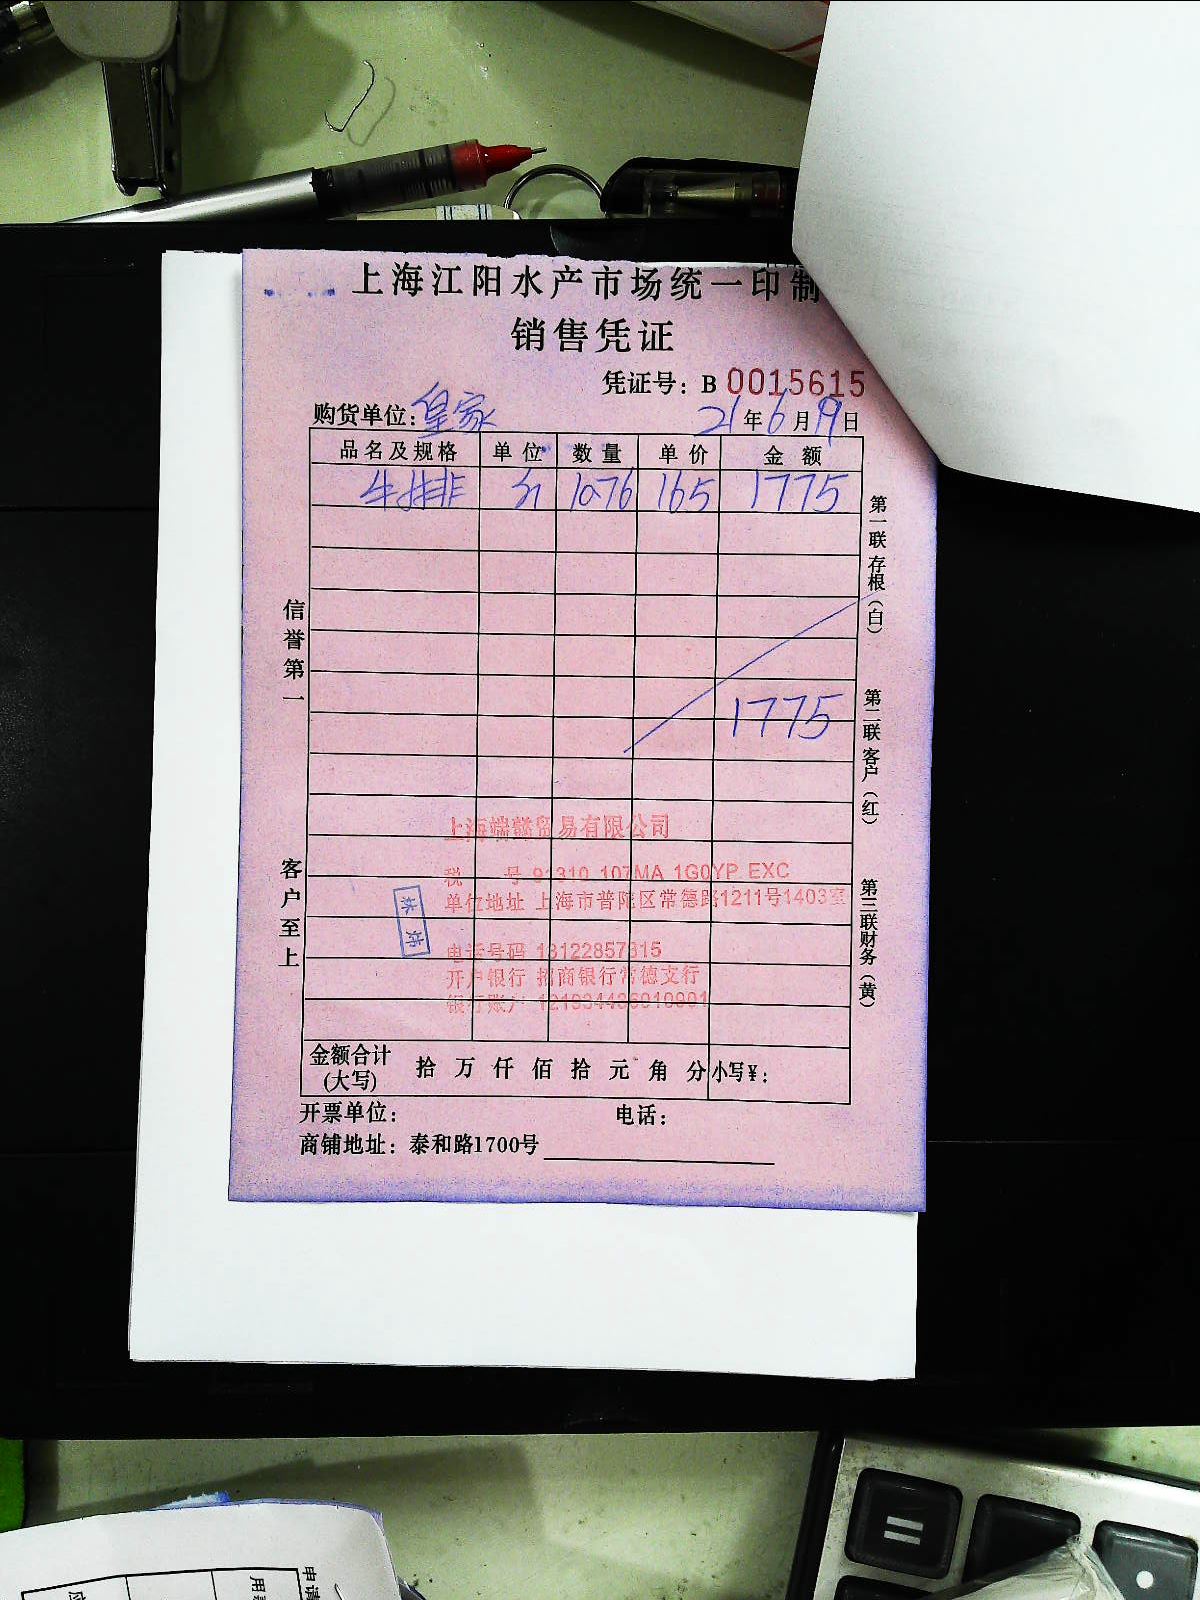 上海江阳水产市场统一印制
销售凭证
凭证号：B 0015615
购货单位：皇家 21年6月19日
品名及规格 单位 数量 单价 金额
牛排 斤 10.76 165 1775
1775
信誉第一
客户至上
第一联存根（白）
第二联客户（红）
第三联财务（黄）
上海端赣贸易有限公司
税 号 91310 107MA 1G0YP EXC
单位地址 上海市普陀区常德路1211号1403室
电话号码 18122857315
开户银行 招商银行常德支行
银行账户
金额合计 拾 万 仟 佰 拾 元 角 分 小写￥：
(大写)
开票单位： 电话：
商铺地址：泰和路1700号
申请